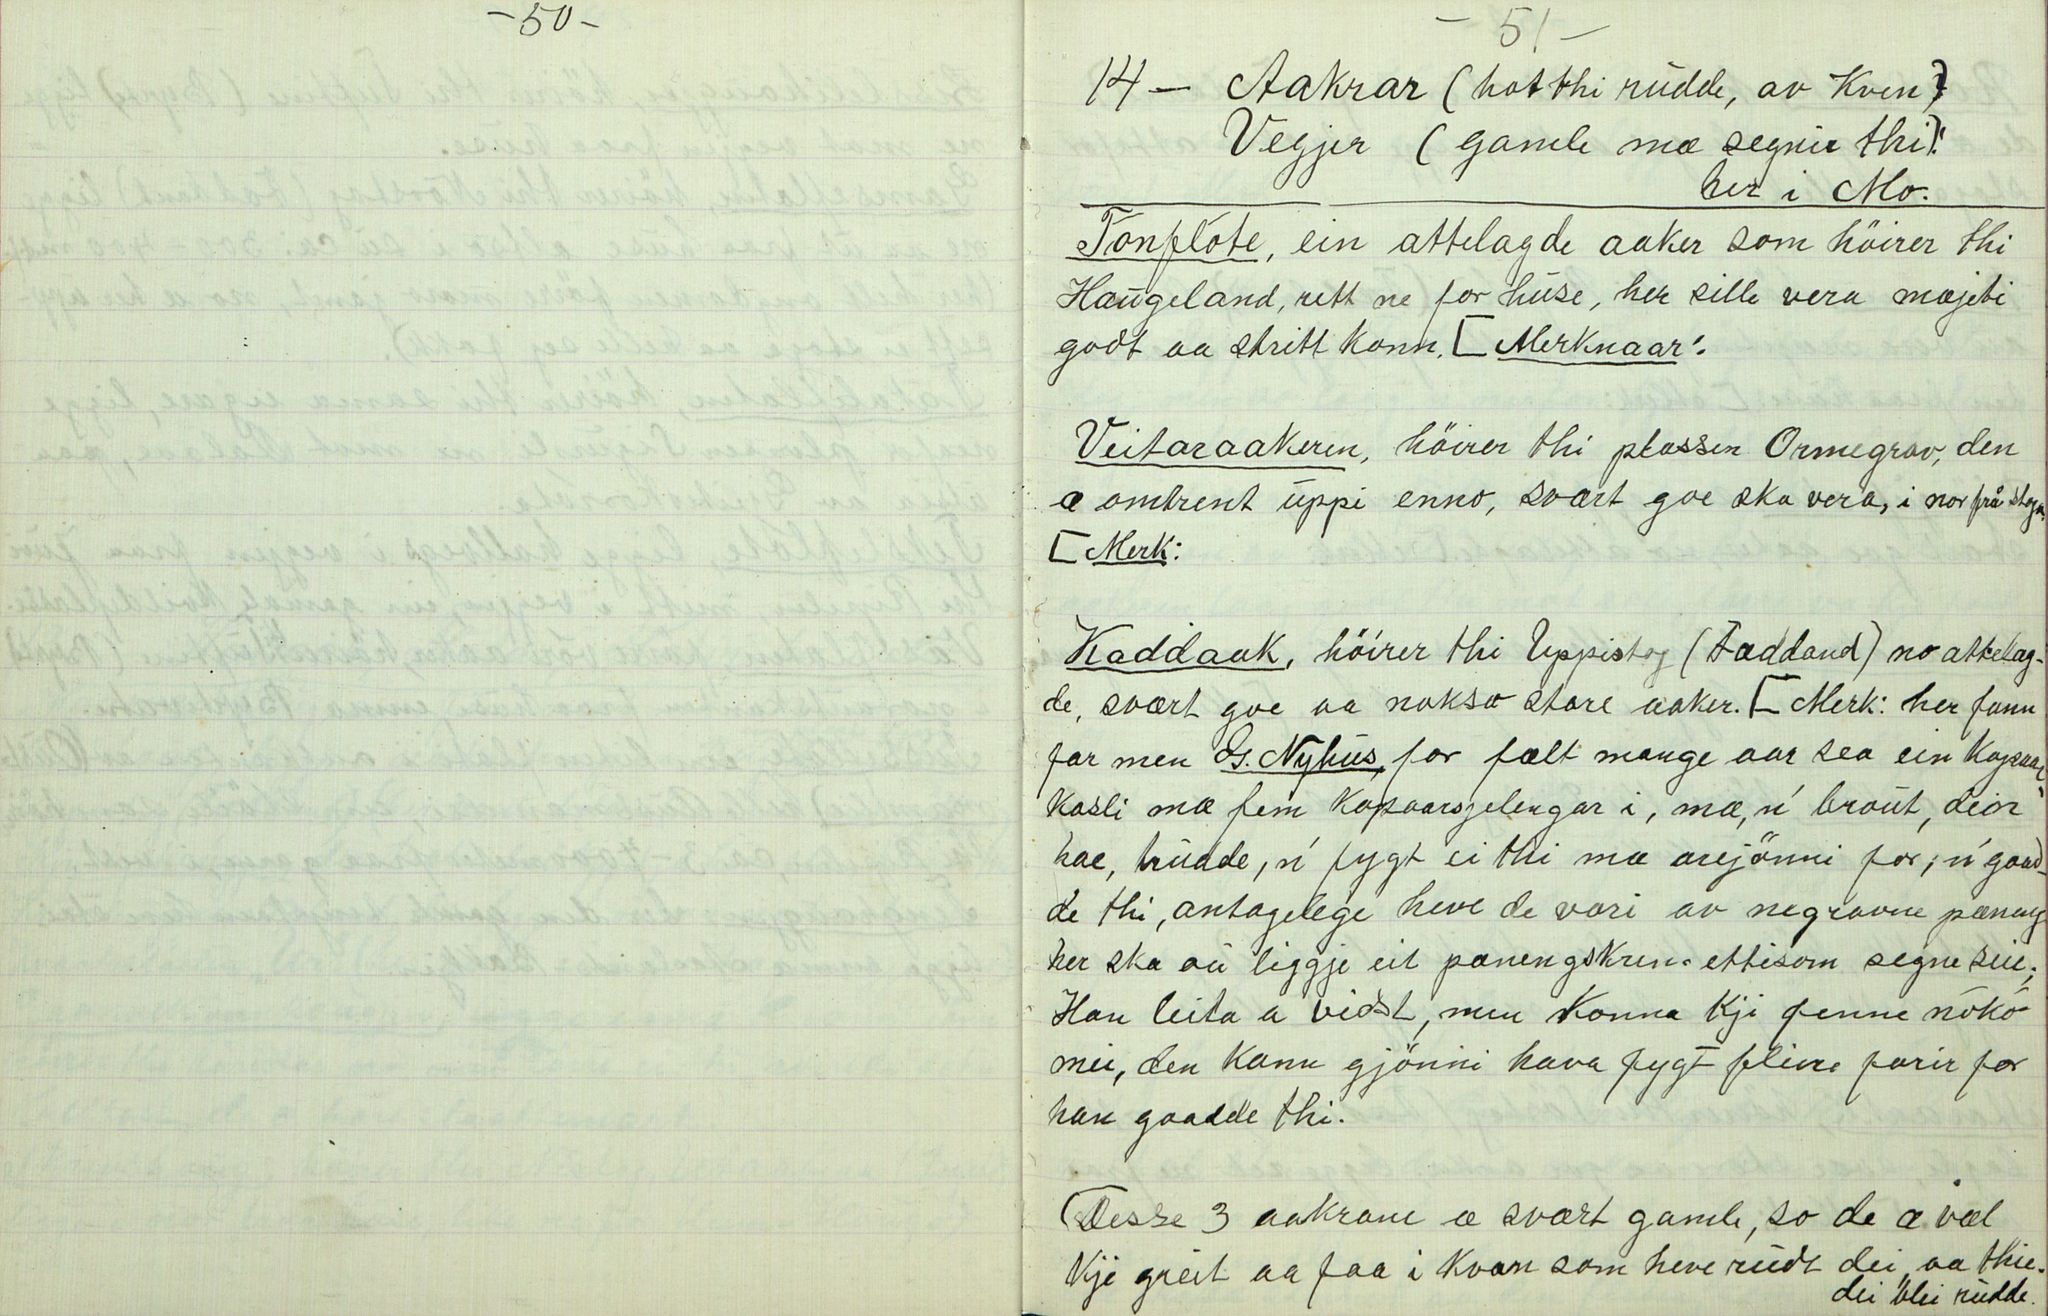 -50-
- 51 -
14 - Aakrar (hot thi rudde, av Kven)
Vegjer (gamle mæ segnir thi):
her i Mo.
Tonflote, ein attelagde aaker som höirer thi
Haugeland, rett ne for huse, her sille vera mæjebi
godt aa stritt konn. [Merknaar:
Veitaraakeren, höirer thi plassen Ormegrav, den
æ omtrent uppi enno, svært goe ska vera, i nor frå stoga.
[Merk:
Kaddaak, höirer thi Uppistog (Fæddand) no attelag-
de, svært goe aa nokso store aaker. [Merk: her fann
far men Gs. Nyhus, for fælt mange aar sea ein Kopaar-
kasli mæ fem koparsjelengar i, mæ, n' braut, deir
hae, trudde, n' fygt ei thi mæ arejönni for, n' gaad-
de thi, antagelege heve de vori av negravne pæneng
her ska au liggje eit pænengskrin ettisom segne seie;
Han leita a vidst, men konna kji fenne nökö
mei, den kann gjönni hava fygt fleire farir for
han gaadde thi.
(Desse 3 aakrane æ svært gamle, so de æ væl
kje greit aa faa i kvann som heve rudt dei, aa thie
dei blei rudde.